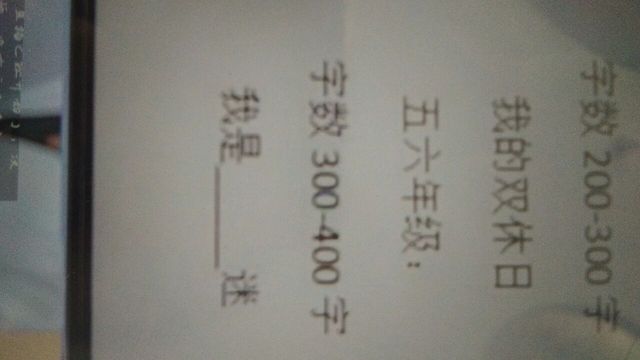 字数 200-300 字
我的双休日
五六年级：
字数 300-400 字
我是______迷